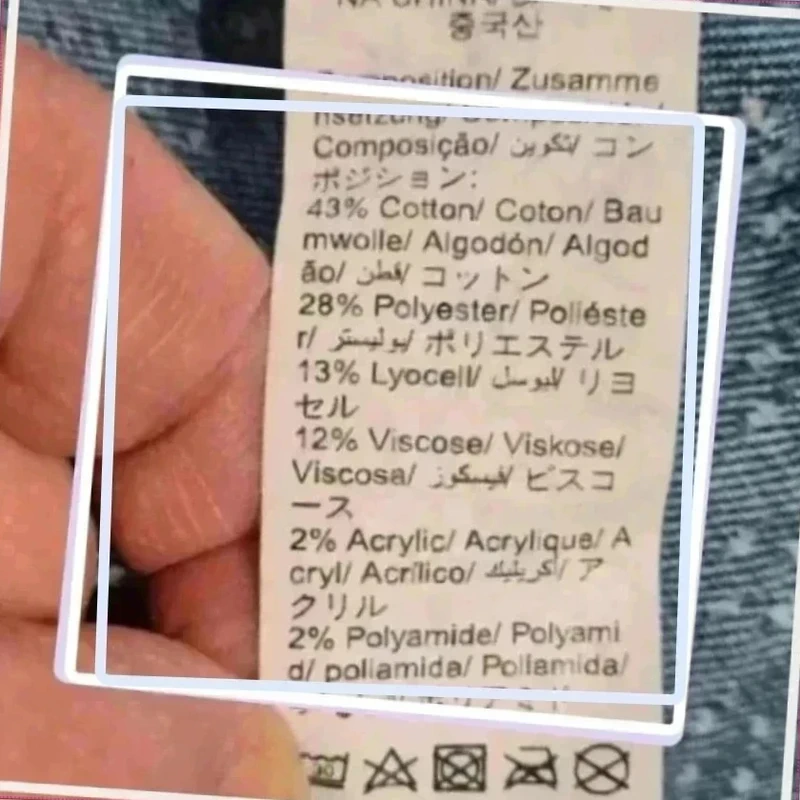 중국산
Composition/ Zusamme
nsetzung/
Composição/ تكوين/ コン
ポジション:
43% Cotton/ Coton/ Bau
mwolle/ Algodón/ Algod
ão/ قطن/ コットン
28% Polyester/ Poliéste
r/ بوليستر/ ポリエステル
13% Lyocell/ ليوسل/ リヨ
セル
12% Viscose/ Viskose/
Viscosa/ فيسكوز/ ビスコ
ース
2% Acrylic/ Acrylique/ A
cryl/ Acrílico/ اكريليك/ ア
クリル
2% Polyamide/ Polyami
d/ poliamida/ Poliamida/